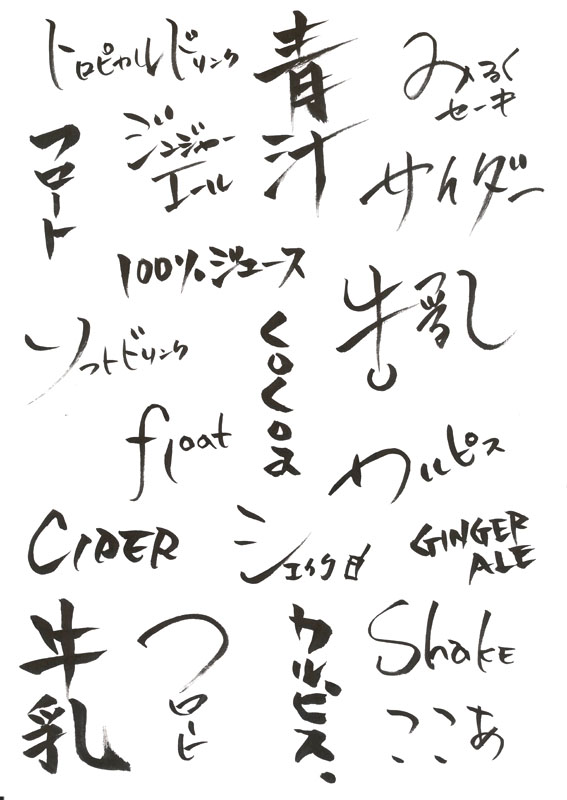 トロピカルドリンク
青汁
みるく
セーキ
フロート
ジンジャー
エール
サイダー
100%ジュース
牛乳
ソフトドリンク
cocoa
float
カルピス
CIDER
シェイク
GINGER
ALE
牛乳
フロート
カルピス
Shake
ここあ